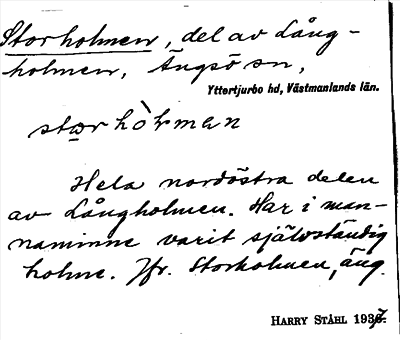 Storholmen, del av Lång-
holmen, Ängsö sn,
Yttertjurbo hd, Västmanlands län.
storhòlman
Hela nordöstra delen
av Långholmen. Har i man-
naminne varit självständig
holme. Jfr. Storholmen, äng.
HARRY STÅHL 1937.